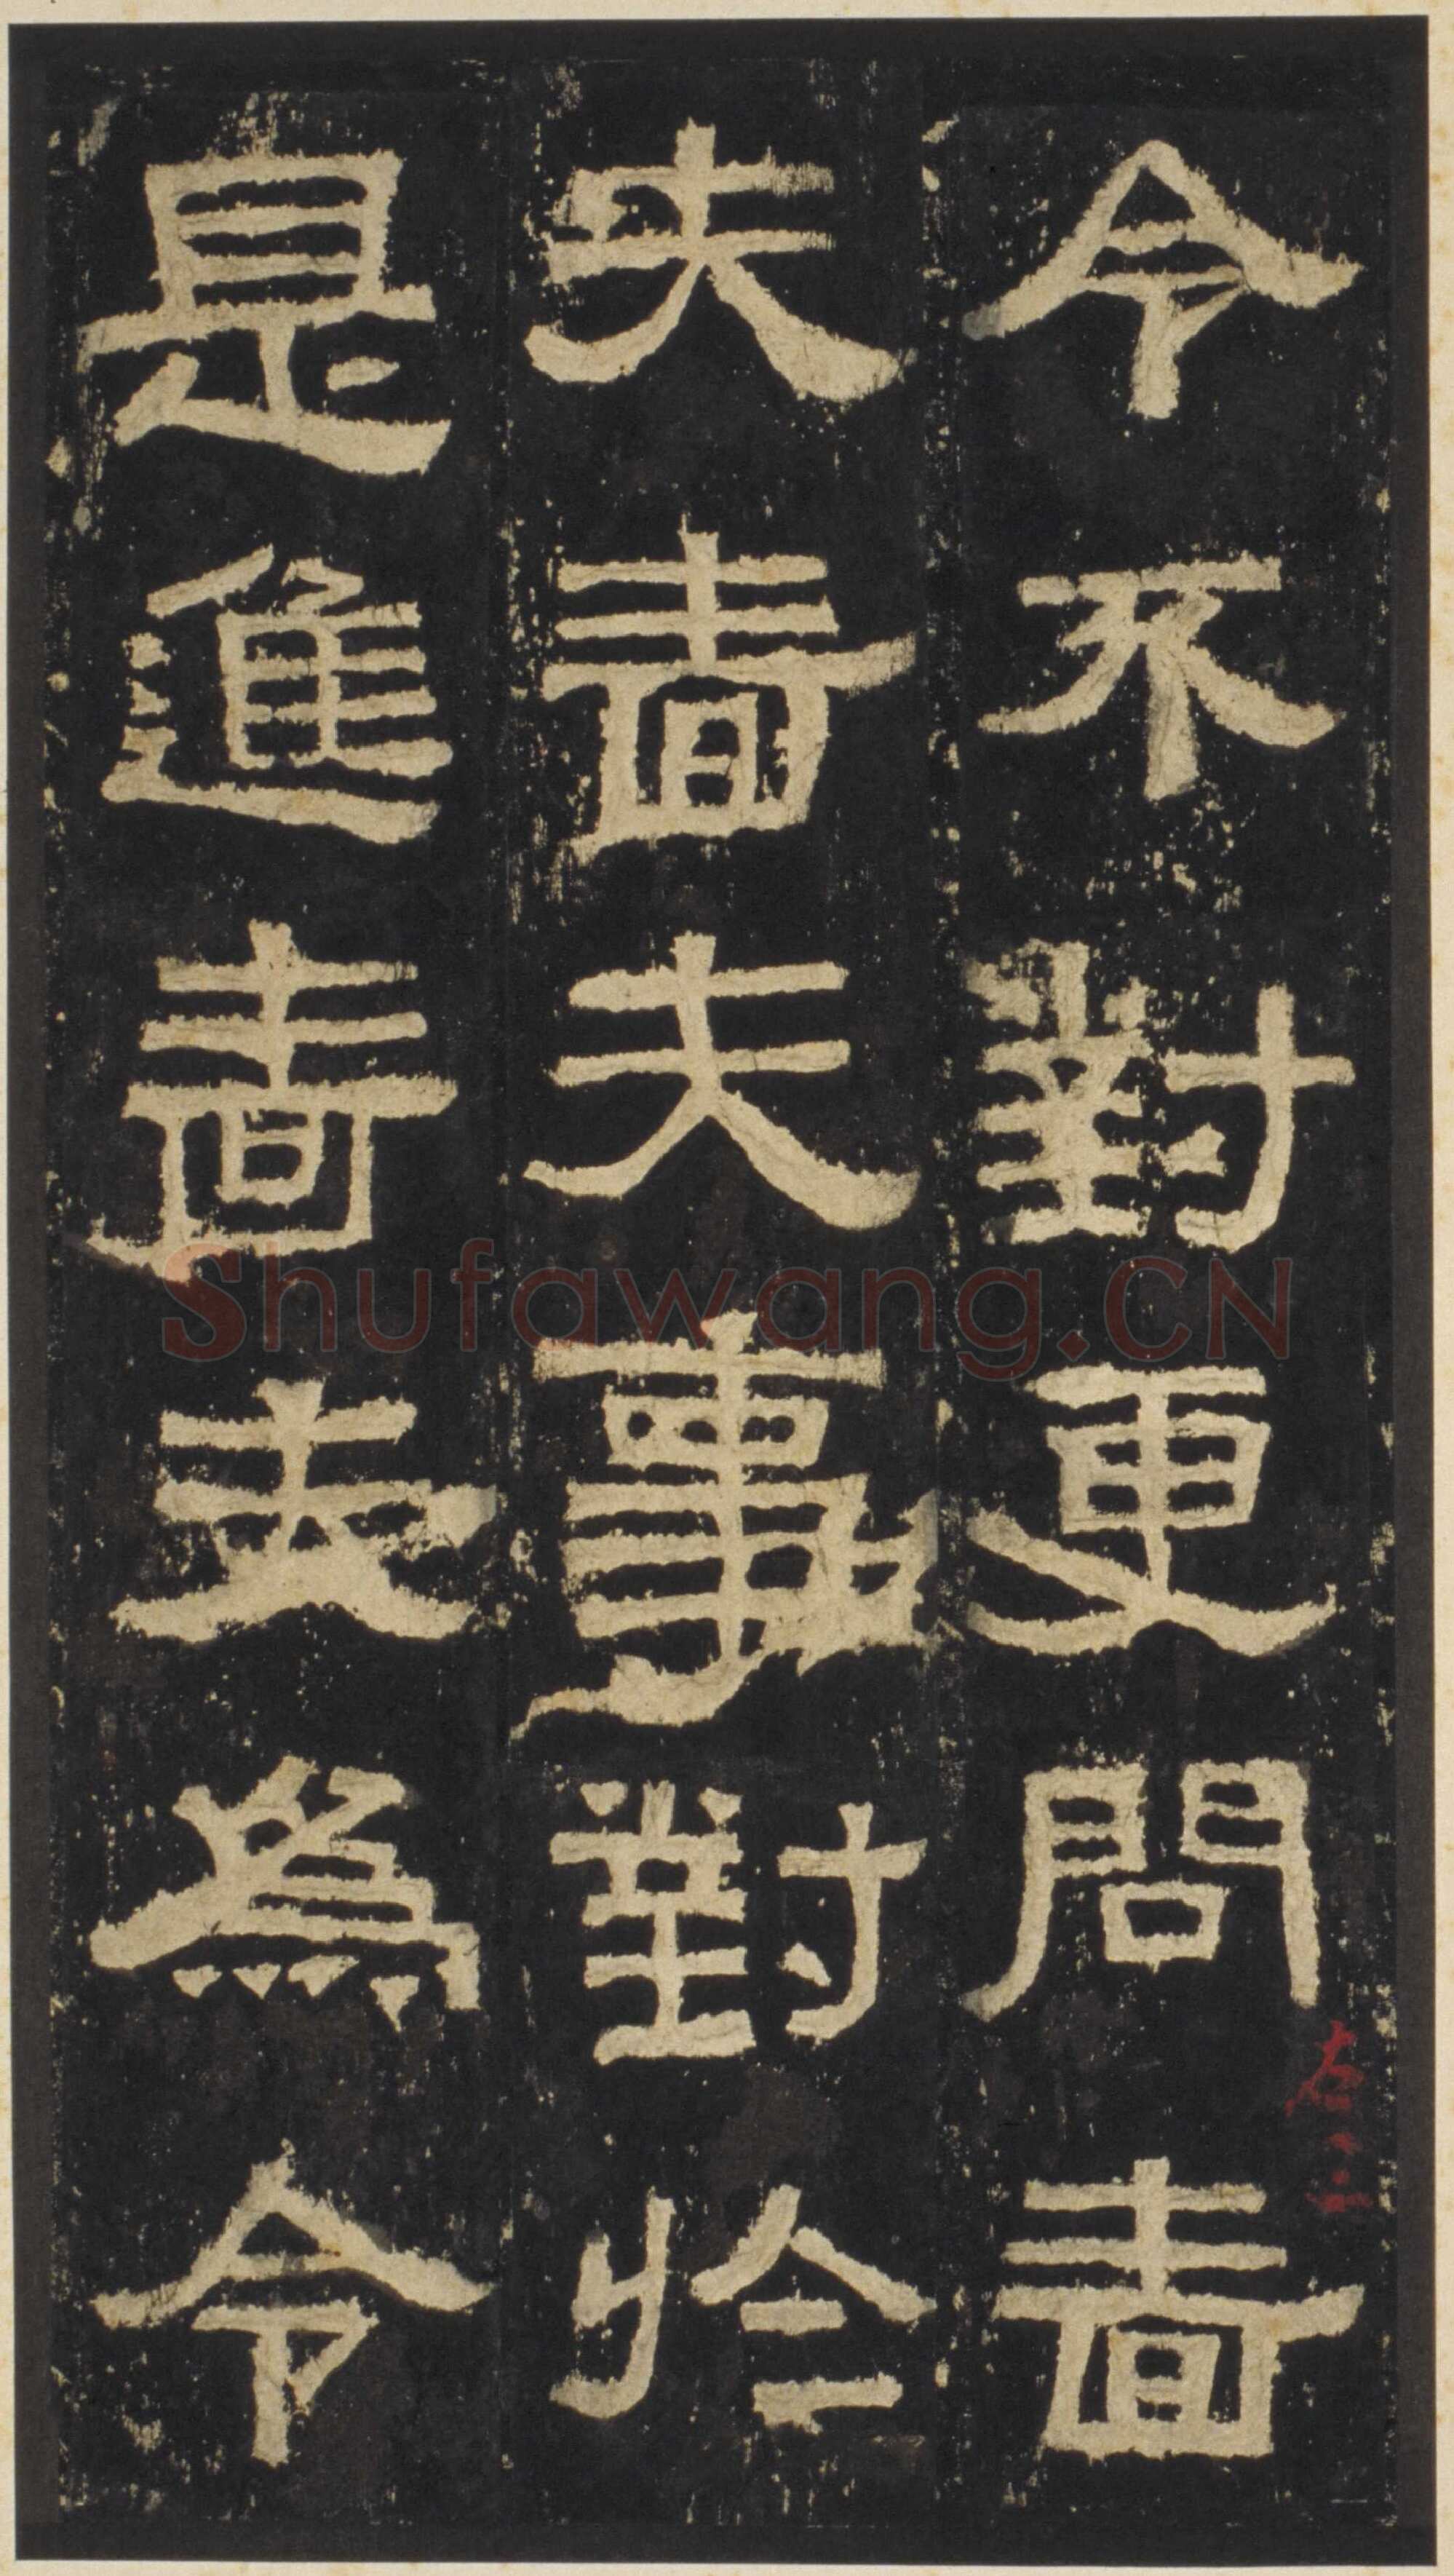 令不對更問嗇
夫嗇夫事對於
是進嗇夫爲令
Shufawang.CN